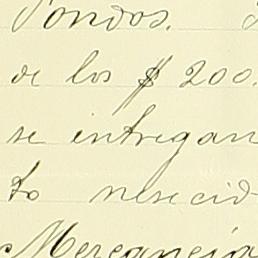 Fondos.
de los $ 200.
se entregan
to nesecid
Mercancia